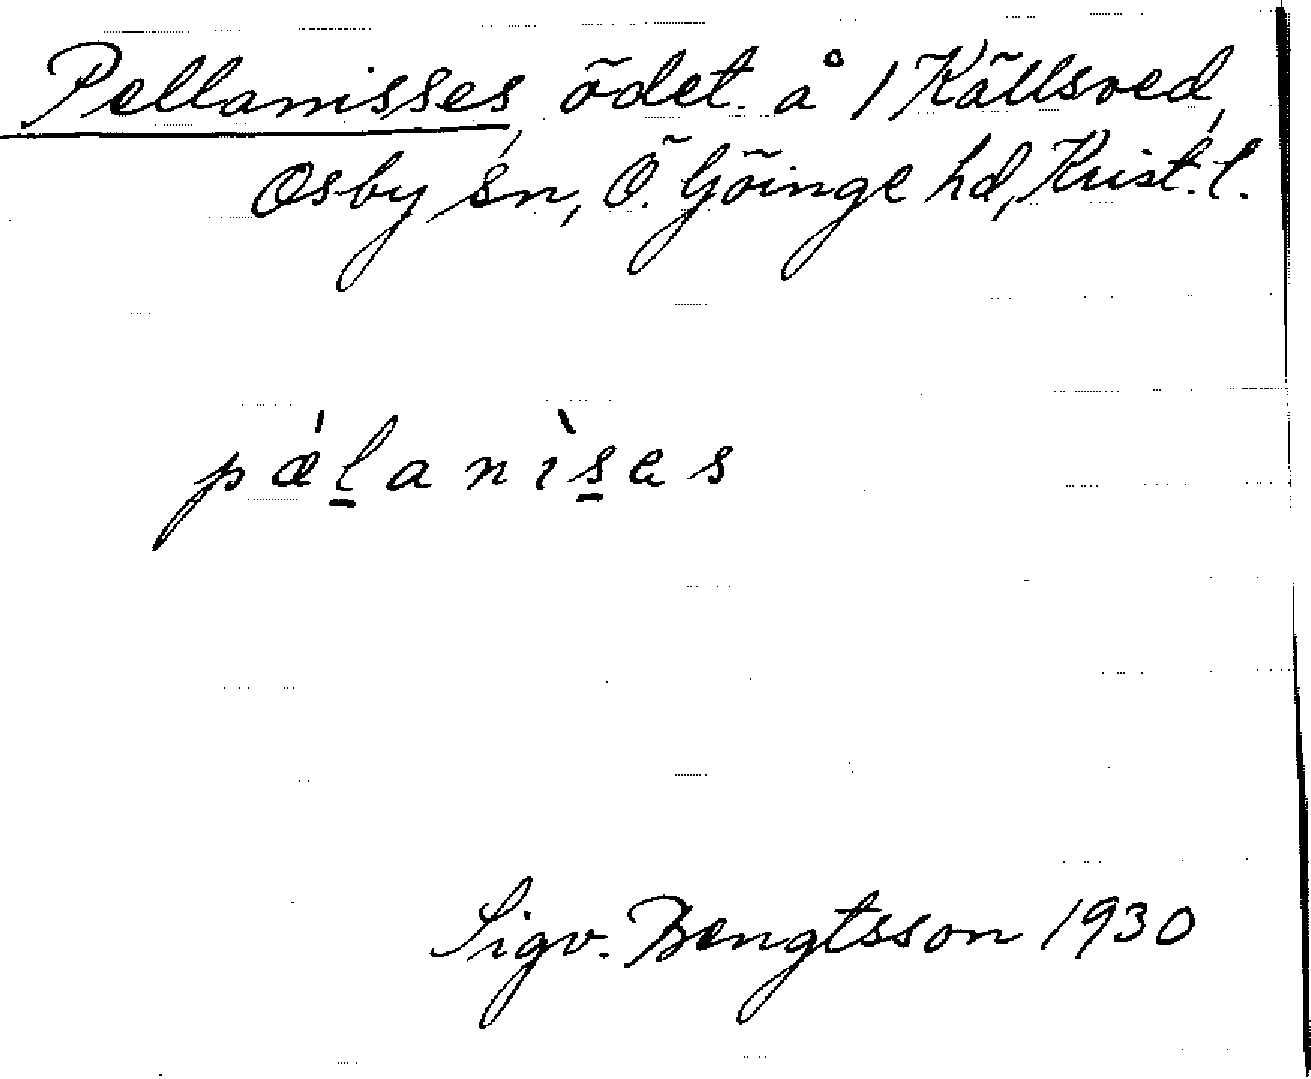 Pellanisses, ödet. å 1 Källsved,
Osby sn, Ö. Göinge hd, Krist. l.
pǽl̲anìs̲es
Sigv. Bengtsson 1930